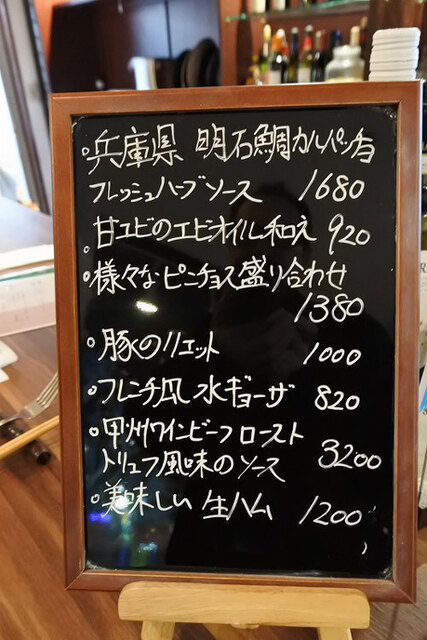 兵庫県 明石鯛カルパッチョ
フレッシュハーブソース 1680
甘エビのエビオイル和え 920
様々なピンチョス盛り合わせ
1380
豚のリエット 1000
フレンチ風水ギョーザ 820
甲州ワインビーフロースト
トリュフ風味のソース 3200
美味しい生ハム 1200